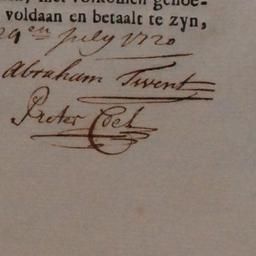 met volkomen genoe-
voldaan en betaalt te zyn,
29en July 1720
Abraham Twent
Pieter Cocl